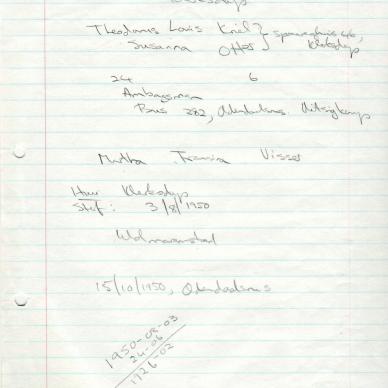 Klerksdorp
Theodorus Louis Kriel } 46,
Susanna Otto } Klerksdorp
24 6
Ambagsman
Bus 282, Odendaalsrus. Uitsigkamp
Martha Visser
Huw Klerksdorp
Sterf: 3/8/1950
Wolmaransstad
15/10/1950, Odendaalsrus
1950-08-03
24-06
1926-02